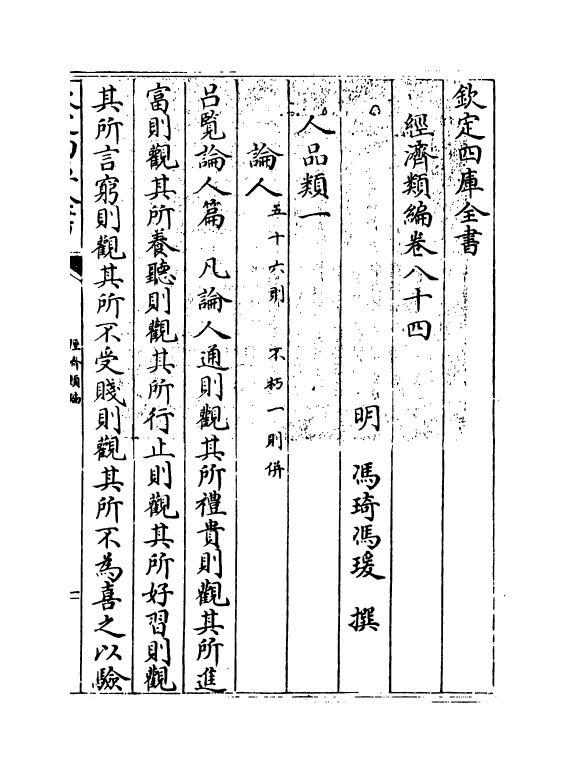 欽定四庫全書
經濟類編卷八十四
明 馮琦馮瑗 撰
人品類一
論人 五十六則 不朽一則併
呂覽論人篇 凡論人通則觀其所禮貴則觀其所進
富則觀其所養聽則觀其所行止則觀其所好習則觀
其所言窮則觀其所不受賤則觀其所不為喜之以驗
經濟類編